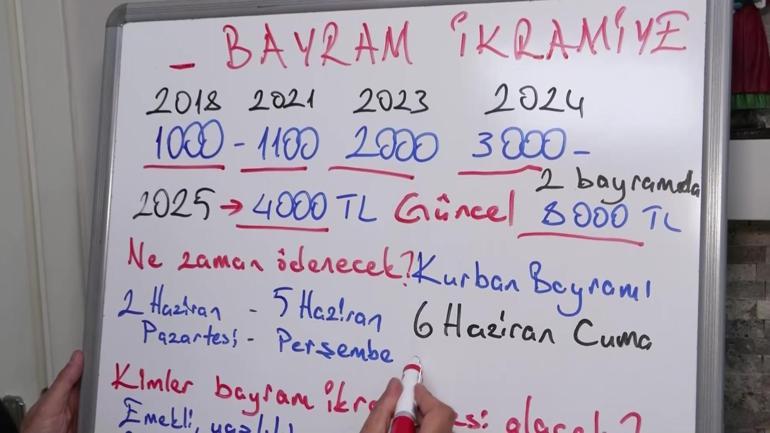 _ BAYRAM İKRAMİYE
2018 2021 2023 2024
1000 - 1100 2000 3000 -
2 bayramda
2025 → 4000 TL Güncel 8000 TL
Ne zaman ödenecek? Kurban Bayramı
2 Haziran - 5 Haziran 6 Haziran Cuma
Pazartesi - Perşembe
Kimler bayram alacak?
Emekli,